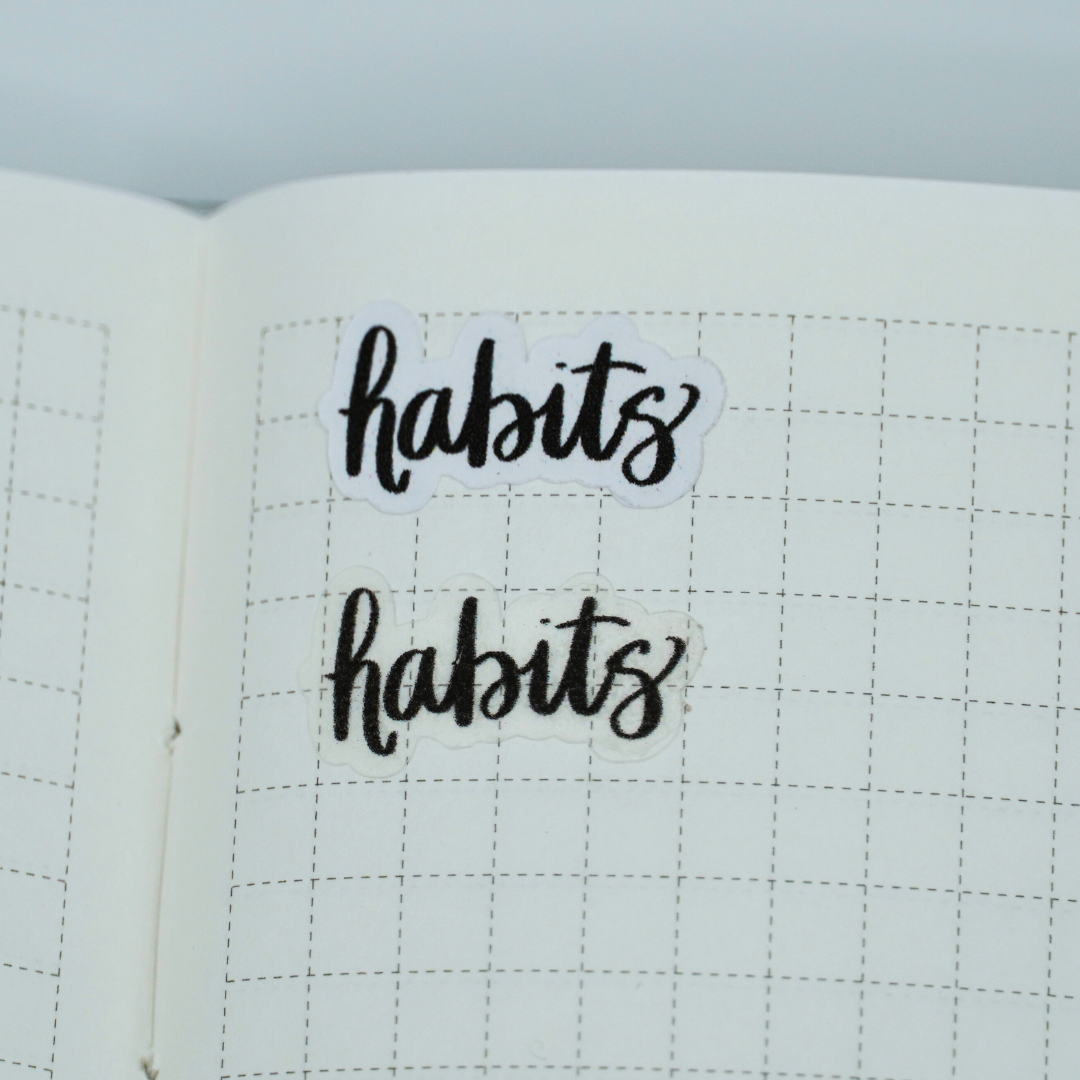 habits
habits